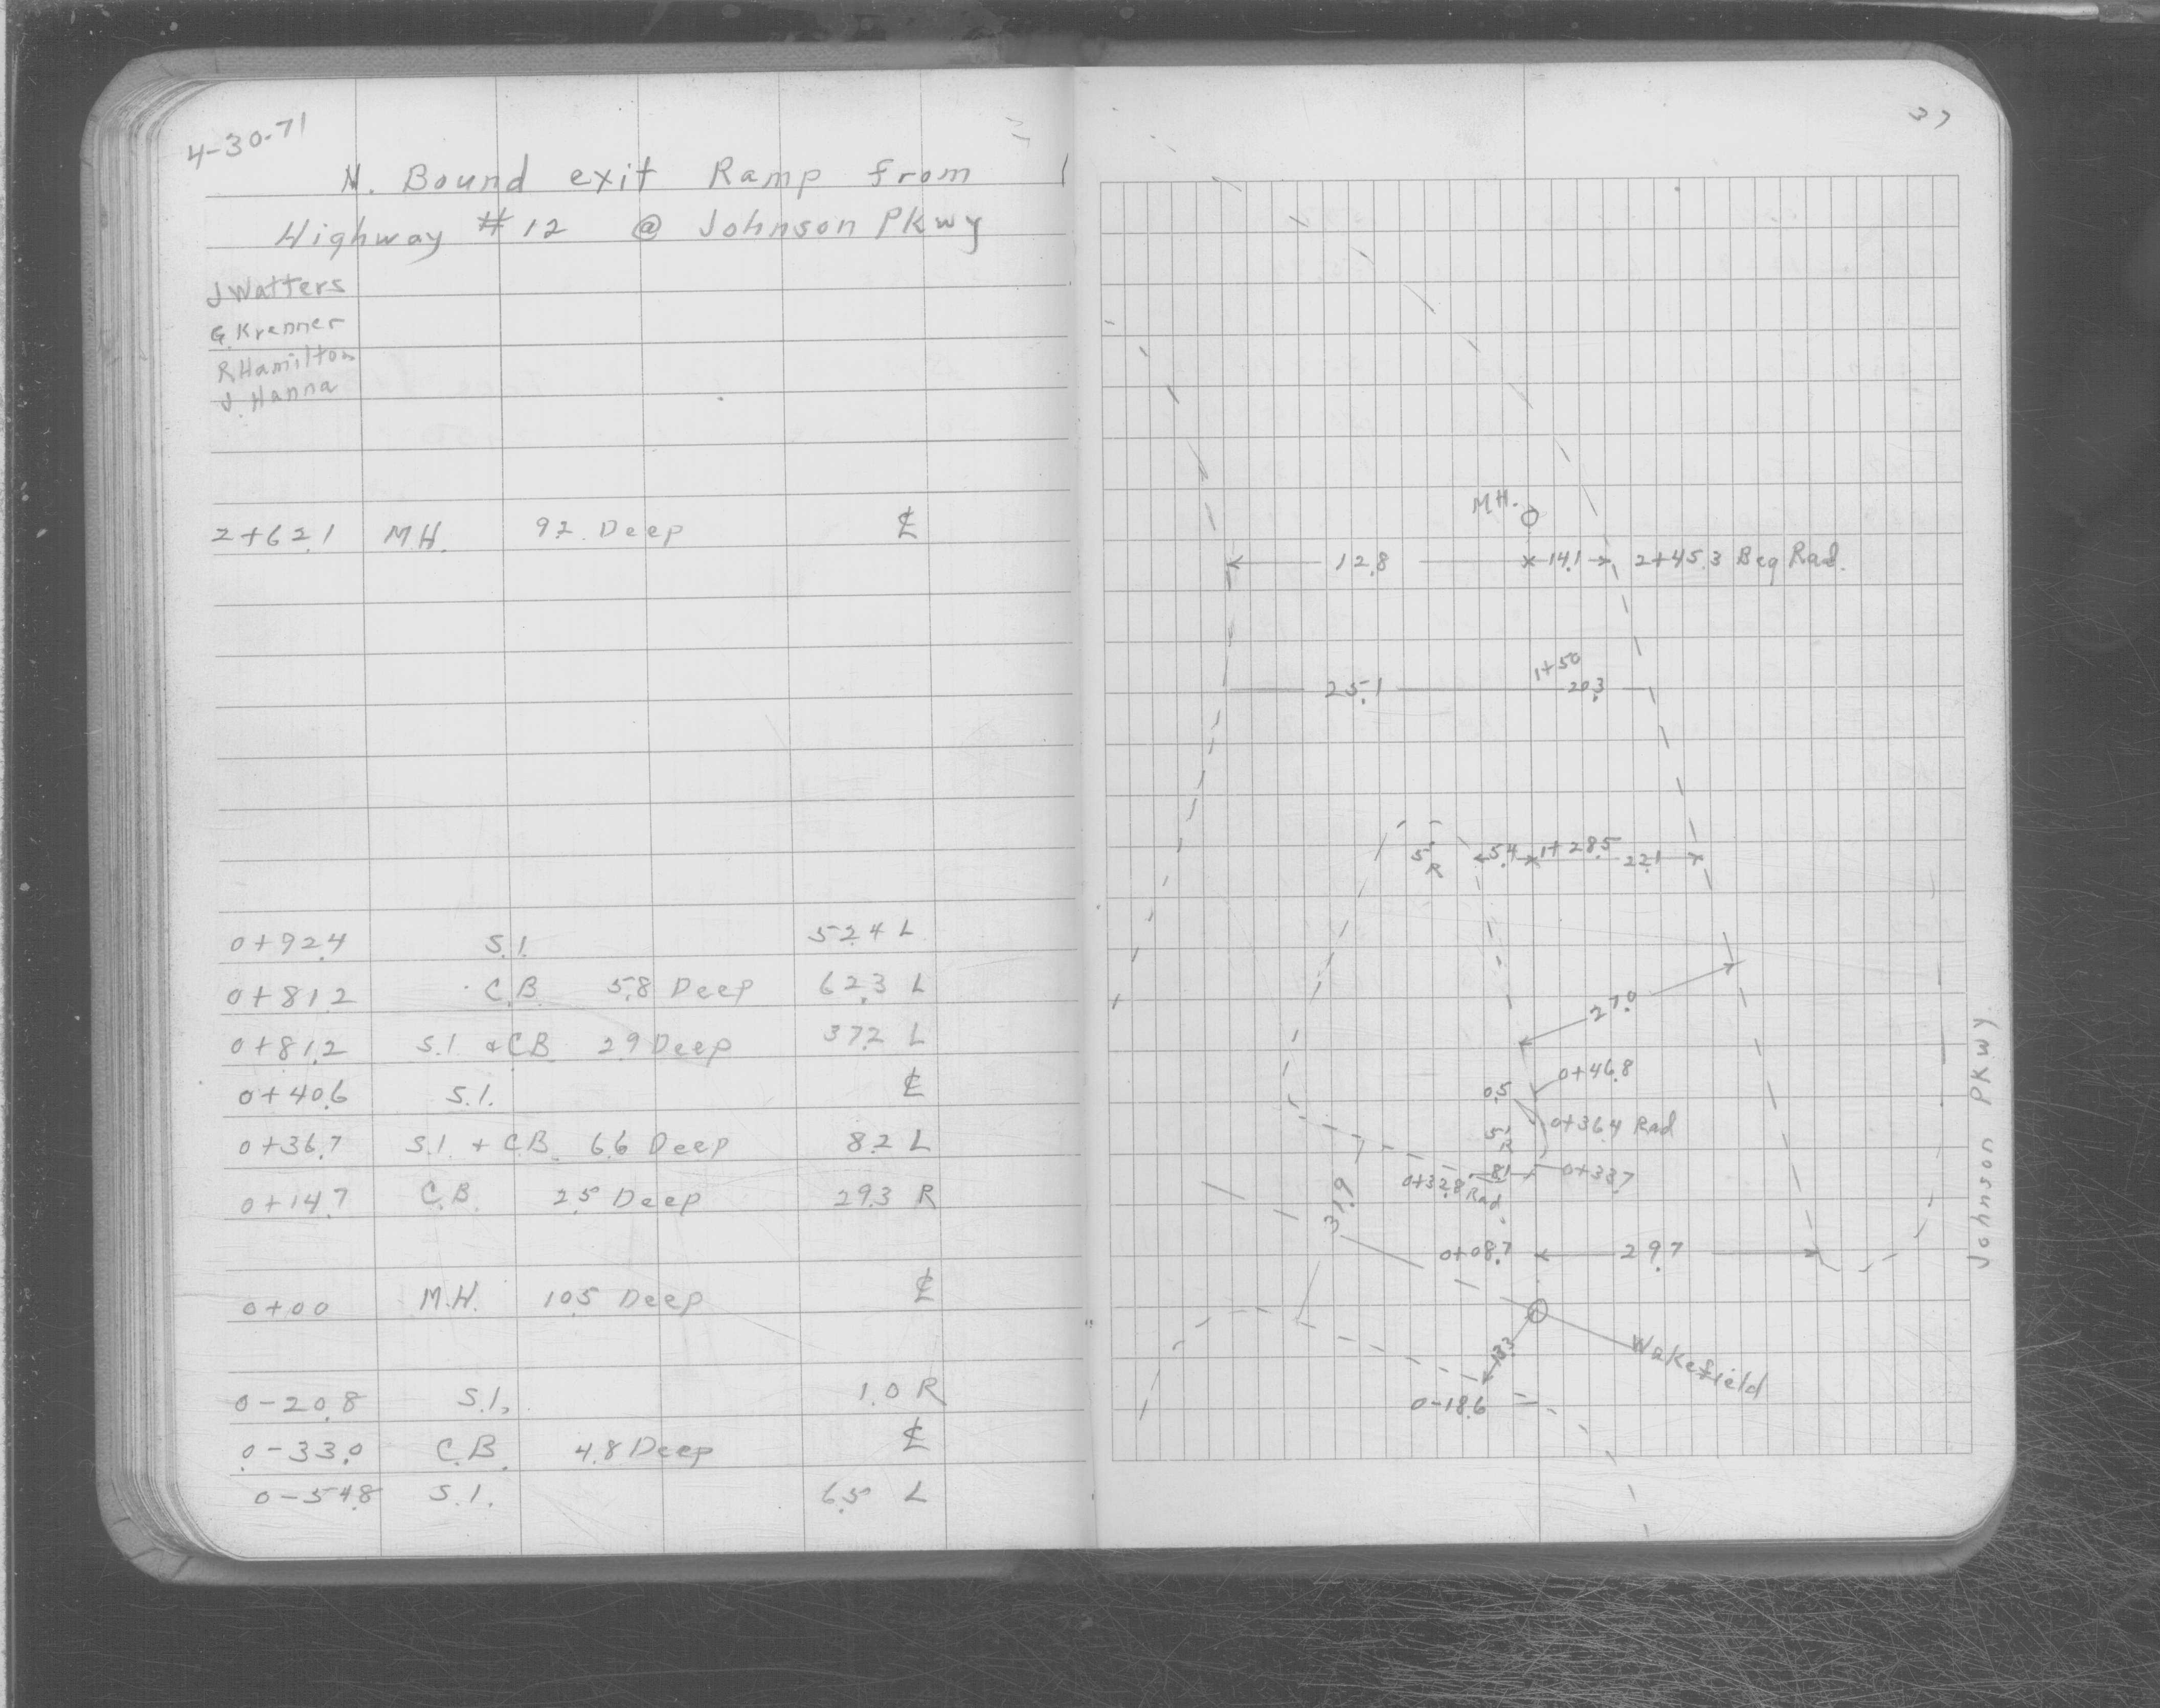 4-30-71
N. Bound exit Ramp from
Highway #12 @ Johnson PKwy
J Watters
G. Krenner
R. Hamilton
J. Hanna
2+62.1 M.H. 9.2 Deep ℄
0+92.4 S.I. 52.4 L
0+81.2 C.B. 5.8 Deep 62.3 L
0+81.2 S.I. & C.B. 2.9 Deep 37.2 L
0+40.6 S.I. ℄
0+36.7 S.I. + C.B. 6.6 Deep 8.2 L
0+14.7 C.B. 2.5 Deep 29.3 R
0+00 M.H. 10.5 Deep ℄
0-20.8 S.I. 1.0 R
0-33.0 C.B. 4.8 Deep ℄
0-54.8 S.I. 6.5 L
37
M.H.
12.8 14.1 2+45.3 Beg Rad.
1+50
25.1 20.3
5' R 5.4 1+28.5 22.1
27.0
0+46.8
0.5
0+36.4 Rad
5' R
0+32.8 Rad. 8.1 0+33.7
31.9
0+08.7 29.7
33
Wakefield
0-18.6
Johnson PKWY